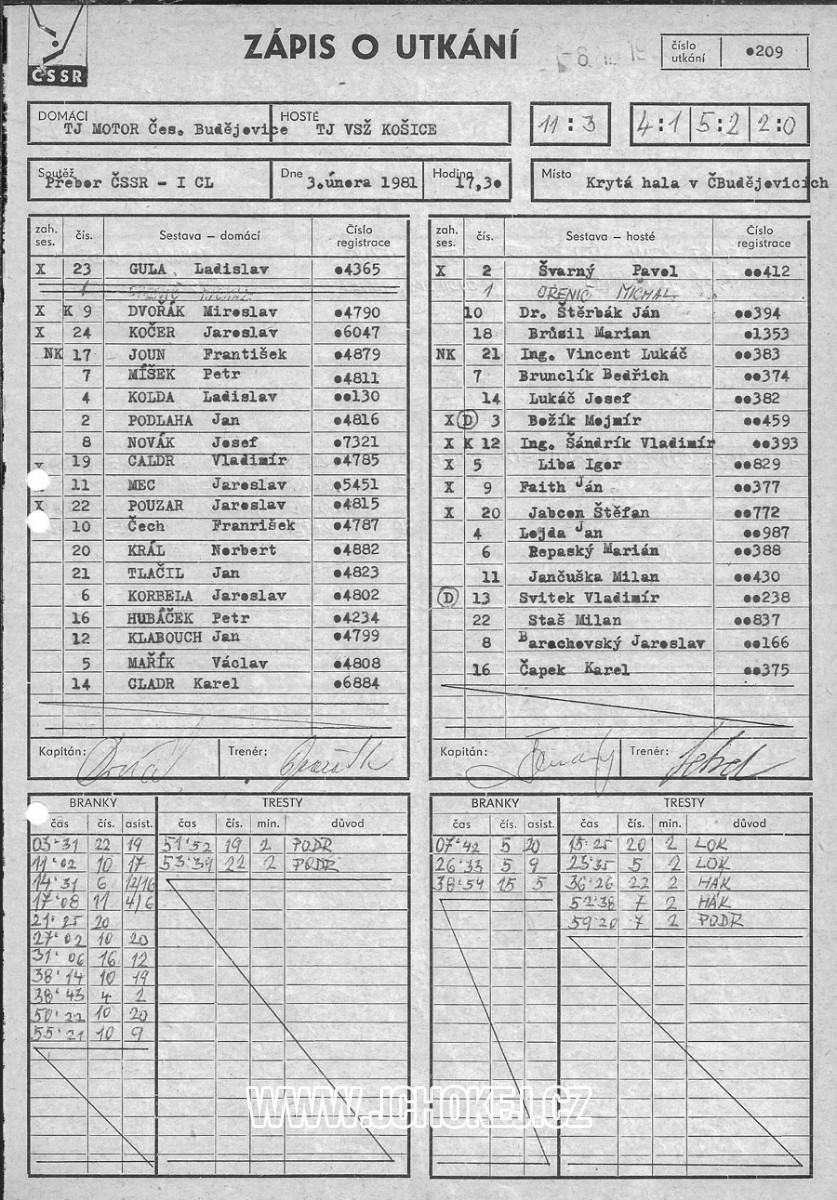 ČSSR
ZÁPIS O UTKÁNÍ
číslo utkání •209
DOMÁCÍ TJ MOTOR Čes. Budějovice HOSTÉ TJ VSŽ KOŠICE 11:3 4:1 5:2 2:0
Soutěž Přebor ČSSR - I CL Dne 3.února 1981 Hodina 17,3• Místo Krytá hala v ČBudějovicích
zah. ses. čís. Sestava – domácí Číslo registrace
X 23 GULA Ladislav •4365
1
X K 9 DVOŘÁK Miroslav •4790
X 24 KOČER Jaroslav •6047
NK 17 JOUN František •4879
7 MÍŠEK Petr •4811
4 KOLDA Ladislav ••130
2 PODLAHA Jan •4816
8 NOVÁK Josef •7321
X 19 CALDR Vladimír •4785
11 MEC Jaroslav •5451
X 22 POUZAR Jaroslav •4815
10 Čech Franrišek •4787
20 KRÁL Norbert •4882
21 TLAČIL Jan •4823
6 KORBELA Jaroslav •4802
16 HUBÁČEK Petr •4234
12 KLABOUCH Jan •4799
5 MAŘÍK Václav •4808
14 CLADR Karel •6884
Kapitán: Trenér:
zah. ses. čís. Sestava – hosté Číslo registrace
X 2 Švarný Pavel ••412
1 OŘENIČ MICHAL
10 Dr. Štěrbák Ján ••394
18 Brůsil Marian •1353
NK 21 Ing. Vincent Lukáč ••383
7 Brunclík Bedřich ••374
14 Lukáč Josef ••382
X D 3 Božík Mojmír ••459
X K 12 Ing. Šándrik Vladimír ••393
X 5 Liba Igor ••829
X 9 Faith Ján ••377
X 20 Jabcon Štěfan ••772
4 Lojda Jan ••987
6 Repaský Marián ••388
11 Jančuška Milan ••430
D 13 Svitek Vladimír ••238
22 Staš Milan ••837
8 Barachovský Jaroslav ••166
16 Čapek Karel ••375
Kapitán: Trenér:
BRANKY TRESTY
čas čís. asist. čas čís. min. důvod
03'31 22 19 51'52 19 2 PODR
11'02 10 17 53'39 22 2 PODR
14'31 6 12/16
17'08 11 4/6
21'25 20
27'02 10 20
31'06 16 12
38'14 10 19
38'43 4 2
50'22 10 20
55'21 10 9
BRANKY TRESTY
čas čís. asist. čas čís. min. důvod
07'42 5 20 15'25 20 2 LOK
26'33 5 9 23'35 5 2 LOK
38'54 15 5 36'26 22 2 HÁK
52'38 7 2 HÁK
59'20 7 2 PODR
WWW.JCHOKEJ.CZ